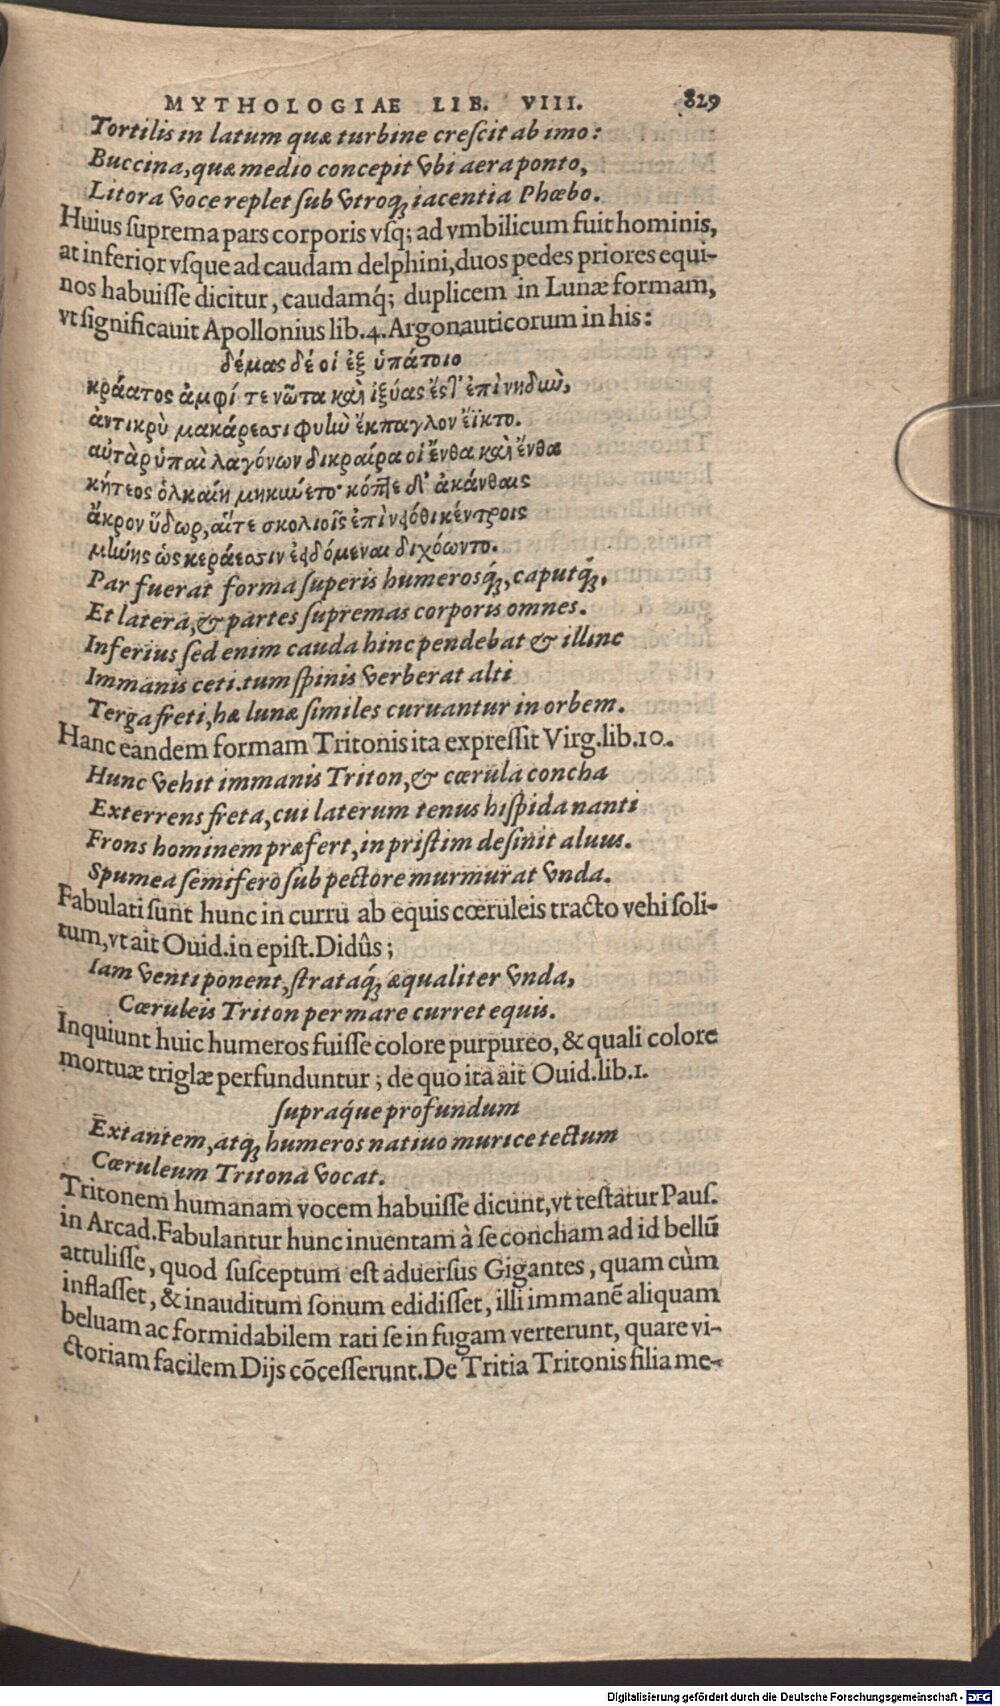 MYTHOLOGIAE LIB. VIII. 829
Tortilis in latum quæ turbine creſcit ab imo:
Buccina, quæ medio concepit vbi aera ponto,
Litora voce replet ſub vtroq; iacentia Phœbo.
Huius ſuprema pars corporis vſq; ad vmbilicum fuit hominis,
at inferior vſque ad caudam delphini, duos pedes priores equi-
nos habuiſſe dicitur, caudamq́; duplicem in Lunæ formam,
vt ſignificauit Apollonius lib. 4. Argonauticorum in his:
δέμας δέ οἱ ἐξ ὑπάτοιο
κράατος ἀμφί τε νῶτα καὶ ἰξύας ἔστ' ἐπὶ νηδιὼ,
ἀντικρὺ μακάρεσσι φυὴν ἔκπαγλον ἔϊκτο.
αὐτὰρ ὑπαὶ λαγόνων δικραίρα οἱ ἔνθα καὶ ἔνθα
κήτεος ὁλκαίη μηκιώετο· κόπτε δ' ἀκάνθαις
ἄκρον ὕδωρ, αἵτε σκολιοῖς ἐπὶ νφόθι κέντροις
μήνης ὡς κεράεσσιν ἐφδόμεναι διχόωντο.
Par fuerat forma ſuperis humerosq́;, caputq́;,
Et latera, & partes ſupremas corporis omnes.
Inferius ſed enim cauda hinc pendebat & illinc
Immanis ceti. tum ſpinis verberat alti
Terga freti, hæ lunæ ſimiles curuantur in orbem.
Hanc eandem formam Tritonis ita expreſſit Virg. lib. 10.
Hunc vehit immanis Triton, & cœrula concha
Exterrens freta, cui laterum tenus hiſpida nanti
Frons hominem præfert, in priſtim deſinit aluus.
Spumea ſemifero ſub pectore murmurat vnda.
Fabulati ſunt hunc in curru ab equis cœruleis tracto vehi ſoli-
tum, vt ait Ouid. in epiſt. Didûs;
Iam venti ponent, ſtrataq́; æqualiter vnda,
Cœruleis Triton per mare curret equis.
Inquiunt huic humeros fuiſſe colore purpureo, & quali colore
mortuæ triglæ perfunduntur; de quo ita ait Ouid. lib. 1.
ſupraq́ue profundum
Extantem, atq; humeros natiuo murice tectum
Cœruleum Tritona vocat.
Tritonem humanam vocem habuiſſe dicunt, vt teſtatur Pauſ.
in Arcad. Fabulantur hunc inuentam à ſe concham ad id bellū
attuliſſe, quod ſuſceptum eſt aduerſus Gigantes, quam cùm
inflaſſet, & inauditum ſonum edidiſſet, illi immanē aliquam
beluam ac formidabilem rati ſe in fugam verterunt, quare vi-
ctoriam facilem Dijs cōceſſerunt. De Tritia Tritonis filia me-
Digitalisierung gefördert durch die Deutsche Forschungsgemeinschaft - DFG